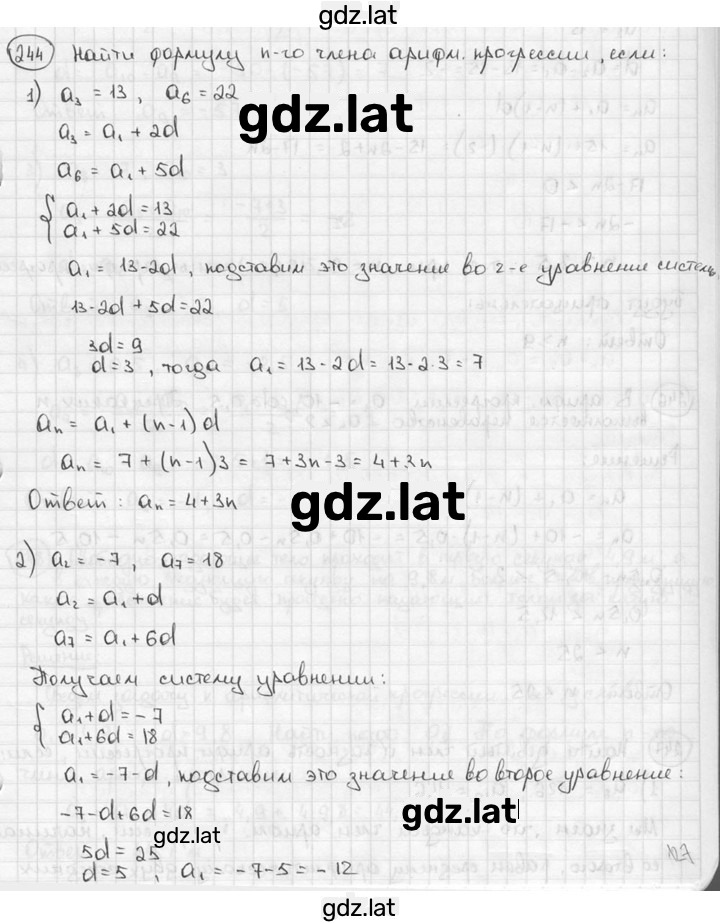 gdz.lat
244 Найти формулу n-го члена арифм. прогрессии, если:
1) a₃ = 13, a₆ = 22
gdz.lat
a₃ = a₁ + 2d
a₆ = a₁ + 5d
{ a₁ + 2d = 13
a₁ + 5d = 22
a₁ = 13-2d, подставим это значение во 2-е уравнение систем
13-2d + 5d = 22
3d = 9
d = 3, тогда a₁ = 13-2d = 13-2·3 = 7
aₙ = a₁ + (n-1)d
aₙ = 7 + (n-1)3 = 7+3n-3 = 4+3n
Ответ: aₙ = 4+3n
gdz.lat
2) a₂ = -7, a₇ = 18
a₂ = a₁+d
a₇ = a₁+6d
Получаем систему уравнении:
{ a₁+d = -7
a₁+6d = 18
a₁ = -7-d, подставим это значение во второе уравнение:
-7-d+6d = 18
gdz.lat
gdz.lat
5d = 25
d = 5, a₁ = -7-5 = -12
127
gdz.lat